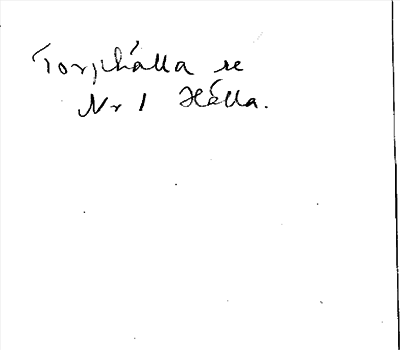 Torphálla se
Nr 1 Hálla.